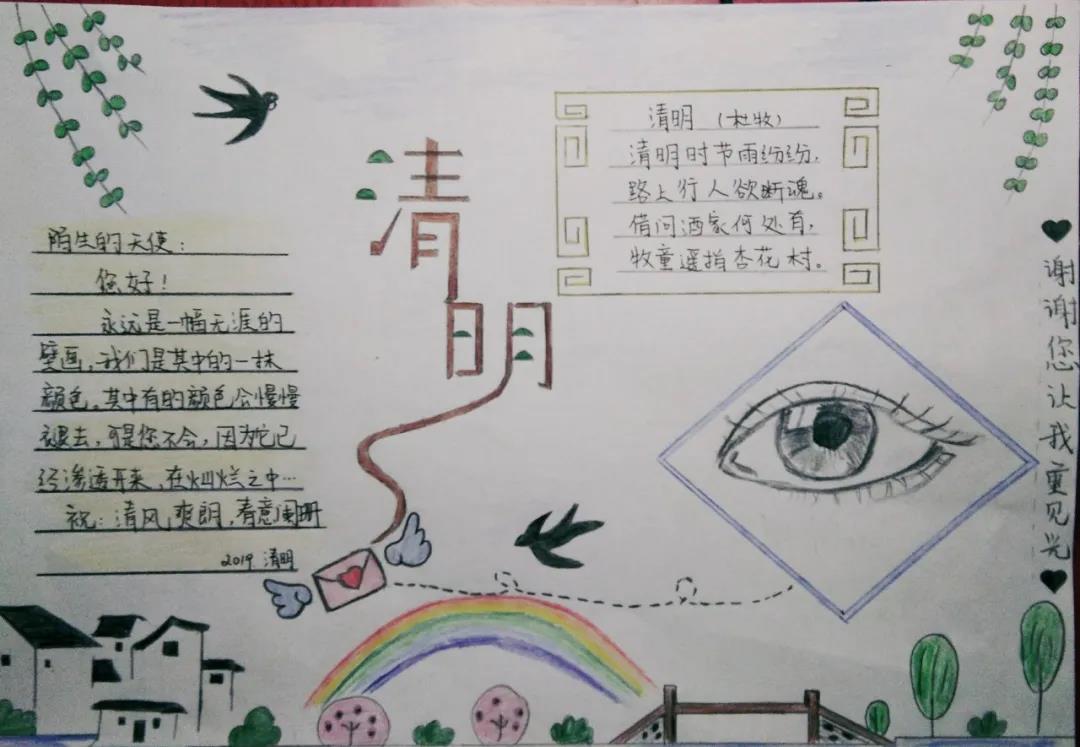 清明
清明 (杜牧)
清明时节雨纷纷，
路上行人欲断魂。
借问酒家何处有，
牧童遥指杏花村。
陌生的天使：
您好！
永远是一幅无涯的
壁画，我们是其中的一抹
颜色。其中有的颜色会慢慢
褪去，可是您不会，因为它已
经渗透开来，在灿烂之中…
祝：清风爽朗，春意阑珊
2019 清明
谢谢您让我重见光